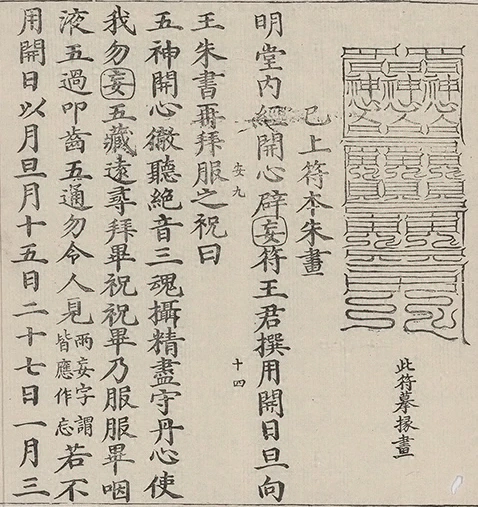 此符摹掾畫
已上符夲朱畫
明堂內經開心辟妄符王君撰用開日旦向
十四
安九
王朱書再拜服之祝曰
五神開心徹聽絕音三魂攝精盡守丹心使
我勿妄五藏遠尋拜畢祝祝畢乃服服畢咽
液五過叩齒五通勿令人見兩妄字謂皆應作忘若不
用開日以月旦月十五日二十七日一月三